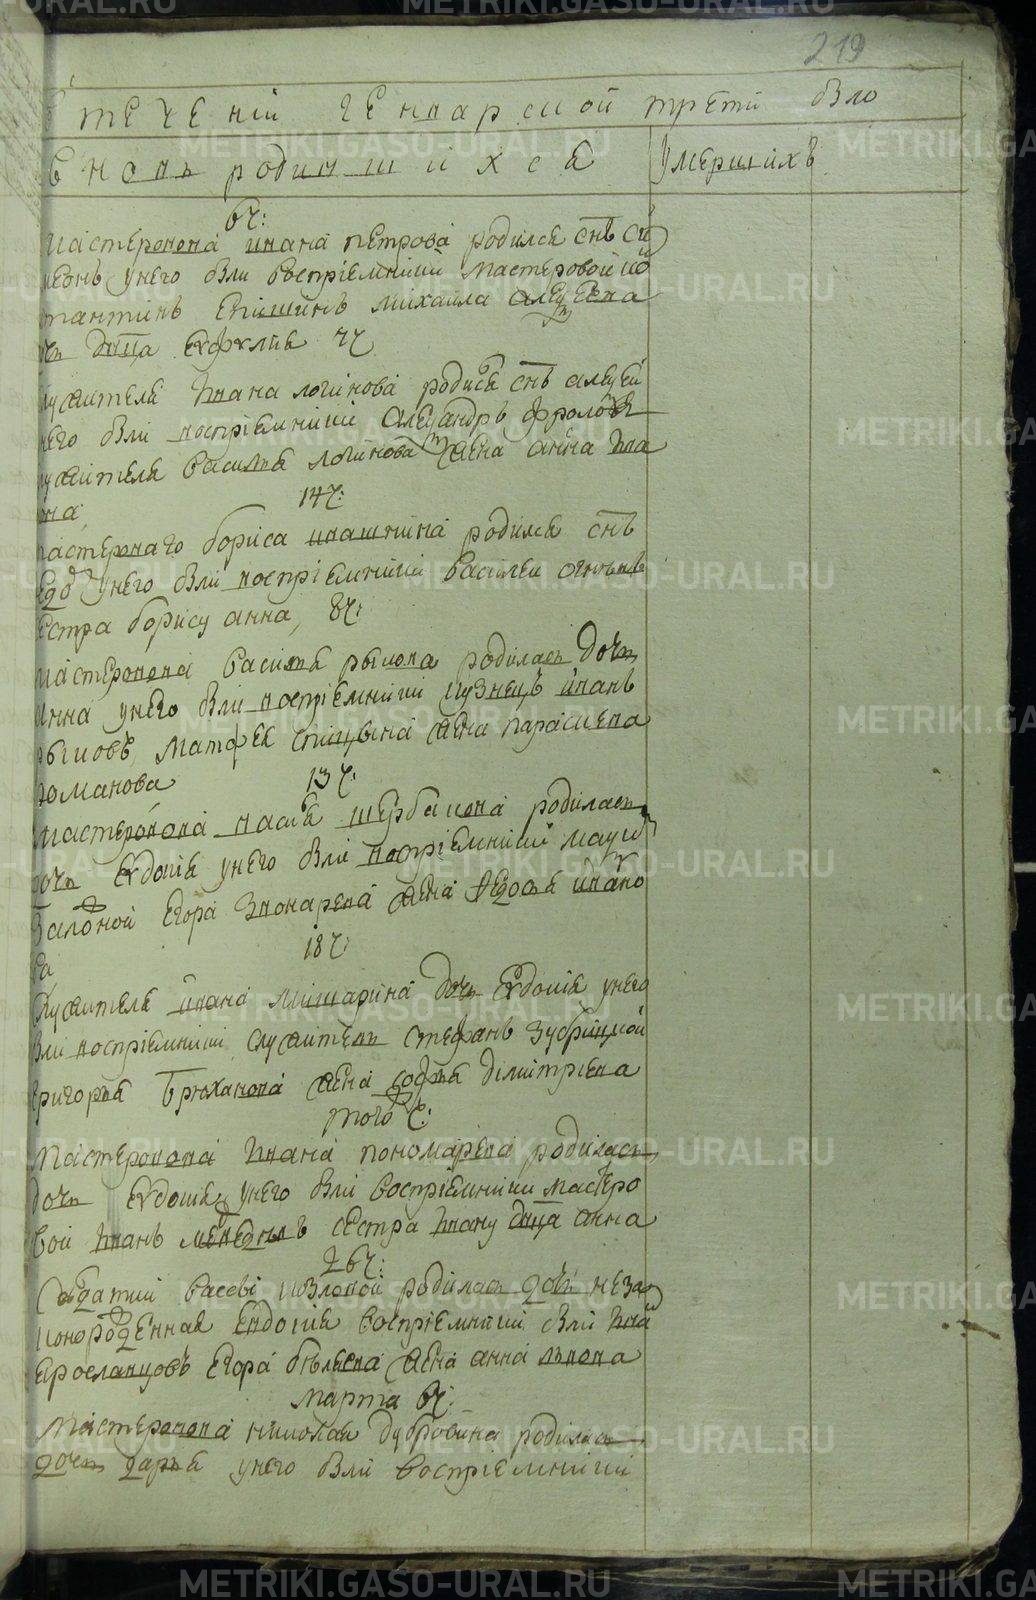 219
в течениі генварской трети было
вновь родившихся умерших
6ч:
мастеровова ивана петрова родился снъ си
меонъ унего были восприемники мастеровой ко
стантинъ епишинъ михаила алеѯеева
дочь дѣвица евфимия 7ч
служителя ивана логинова родился снъ алеѯей
унего были восприемники алеѯандръ фролов
служителя василья логинова жена анна ива
нова
14ч:
мастероваго бориса ивашкина родился снъ
унего были восприемники василеи
сестра борису анна, 8ч:
мастеровова василья рыкова родилась дочь
анна унего были восприемники кузнецъ иванъ
рыковъ, матфея спицына жена парасковья
романова 13ч:
мастеровова щербакова родилась
дочь евдокия унего были восприемники
егора звонарева жена федосья иванова
ва
18ч:
служителя ивана мишарина дочь евдокия унего
были восприемники служитель стефанъ зубрицкой
григорья брюханова жена софья димитриева
того ч:
мастеровова ивана пономарева родилась
дочь евдокия унего были восприемники мастеро
вой иванъ медведевъ сестра ивану дѣвица анна
26ч:
солдатки козловой родилась дочь неза
конорожденная евдокия восприемники были иван
ярославцовъ егора беляева жена анна львова
марта 6ч:
мастеровова николая дубровина родилась
дочь дарья унего были восприемники
METRIKI.GASO-URAL.RU